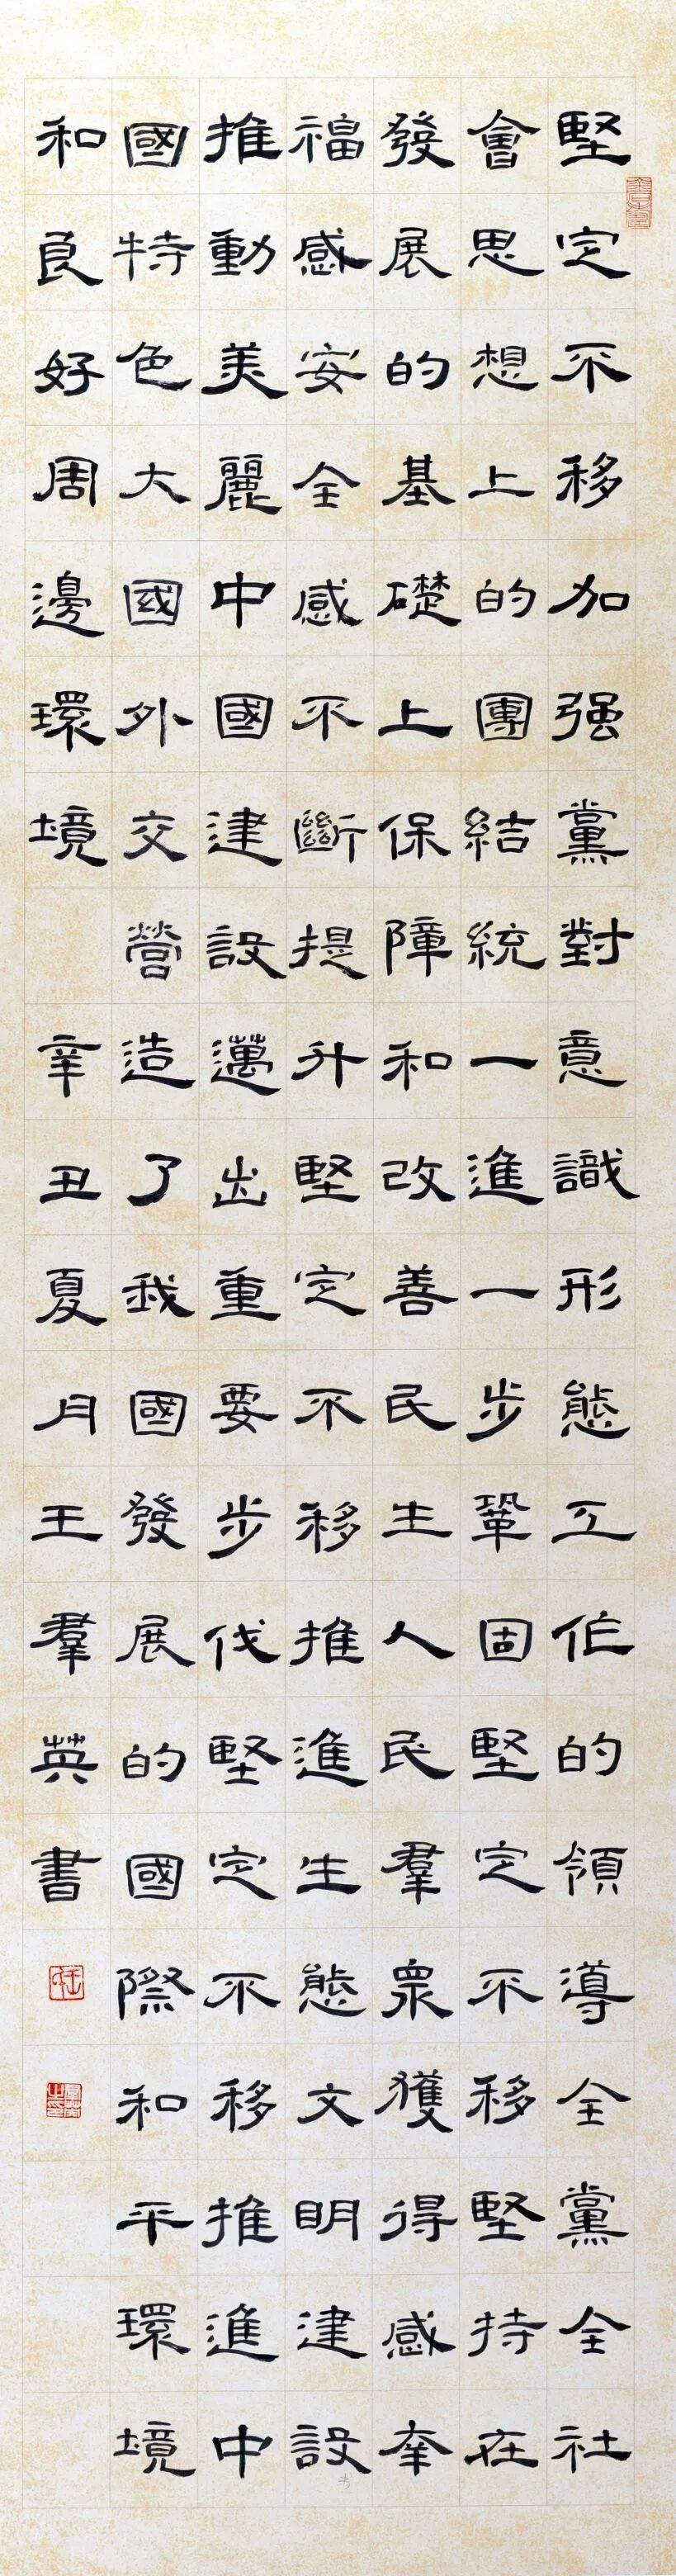 堅定不移加强黨對意識形態工作的領導全黨全社
會思想上的團結統一進一步鞏固堅定不移堅持在
發展的基礎上保障和改善民生人民羣眾獲得感幸
福感安全感不斷提升堅定不移推進生態文明建設
推動美麗中國建設邁出重要步伐堅定不移推進中
國特色大國外交營造了我國發展的國際和平環境
和良好周邊環境 辛丑夏月王羣英書